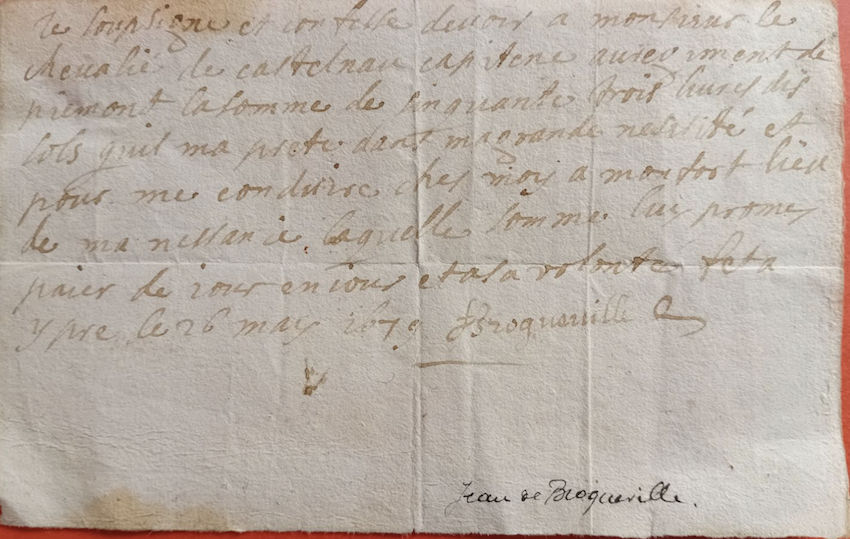 Ie soupsigne et confesse devoir a monsieur le
chevalié de castelnau capitene auregiment de
piemont lasomme de sinquante trois livres dis
sols quil ma prete dans magrande nesesité et
pour me conduire ches moy a monfort lieu
de ma nessance laquelle somme luy promes
paier de iour eniour et asa volonte feta
ypre le 26 may 1679 Broqueville
Jean de Broqueville.